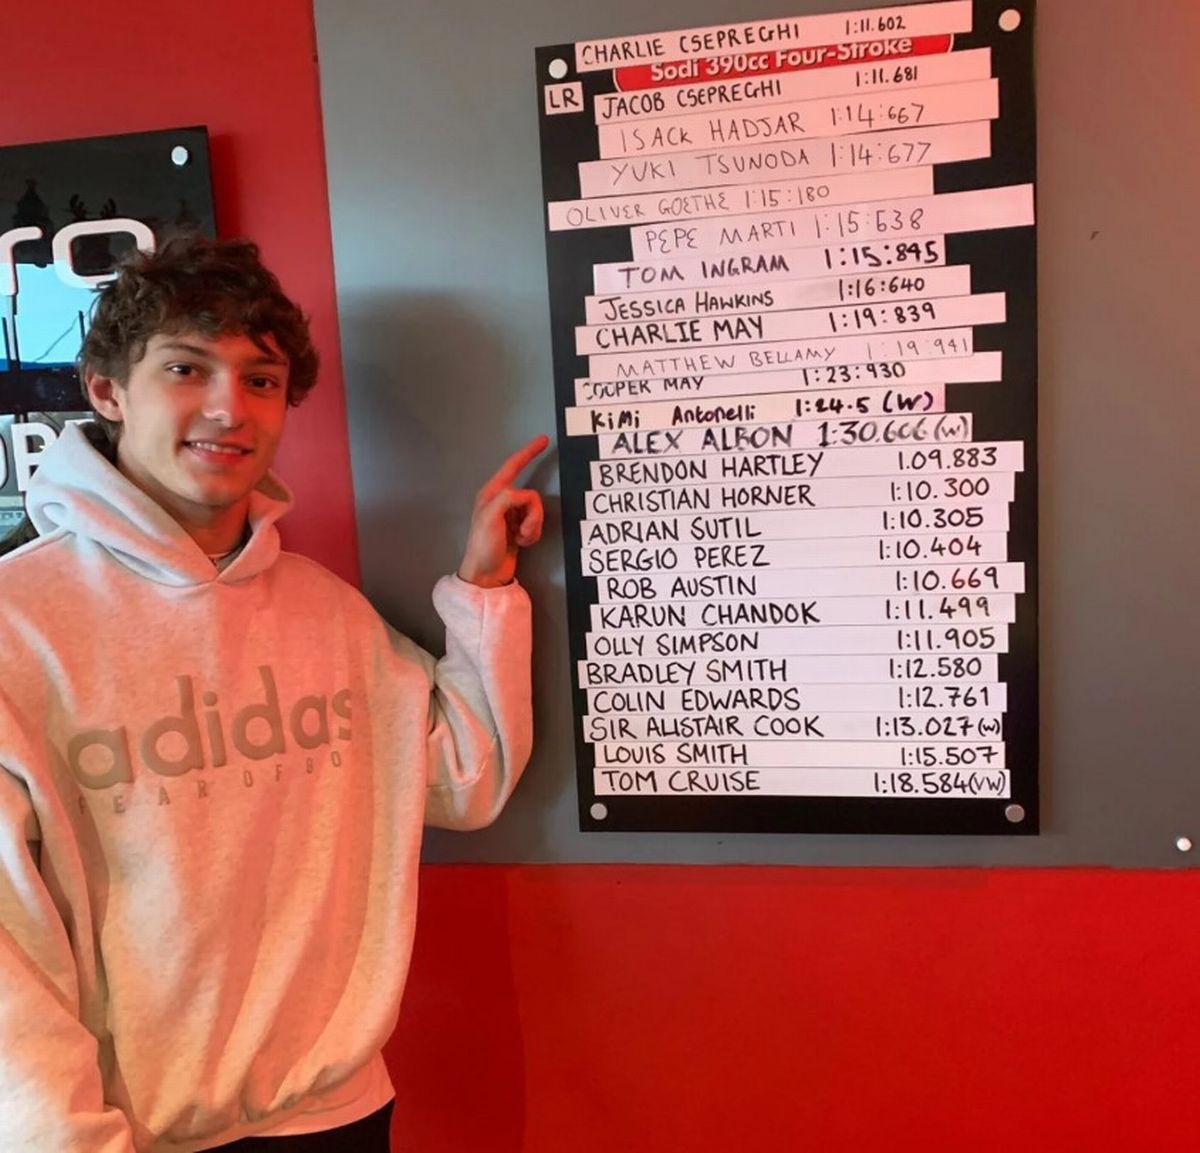 CHARLIE CSEPREGHI 1:11.602
Sodi 390cc Four-Stroke
LR
JACOB CSEPREGHI 1:11.681
ISACK HADJAR 1:14:667
YUKI TSUNODA 1:14:677
OLIVER GOETHE 1:15:180
PEPE MARTI 1:15:638
TOM INGRAM 1:15:845
JESSICA HAWKINS 1:16:640
CHARLIE MAY 1:19:839
MATTHEW BELLAMY 1:19:941
COOPER MAY 1:23:930
KiMi Antonelli 1:24.5 (W)
ALEX ALBON 1:30.606 (W)
BRENDON HARTLEY 1.09.883
CHRISTIAN HORNER 1:10.300
ADRIAN SUTIL 1:10.305
SERGIO PEREZ 1:10.404
ROB AUSTIN 1:10.669
KARUN CHANDOK 1:11.499
OLLY SIMPSON 1:11.905
BRADLEY SMITH 1:12.580
COLIN EDWARDS 1:12.761
SIR ALISTAIR COOK 1:13.027 (W)
LOUIS SMITH 1:15.507
TOM CRUISE 1:18.584 (VW)
adidas
FEAR OF GO